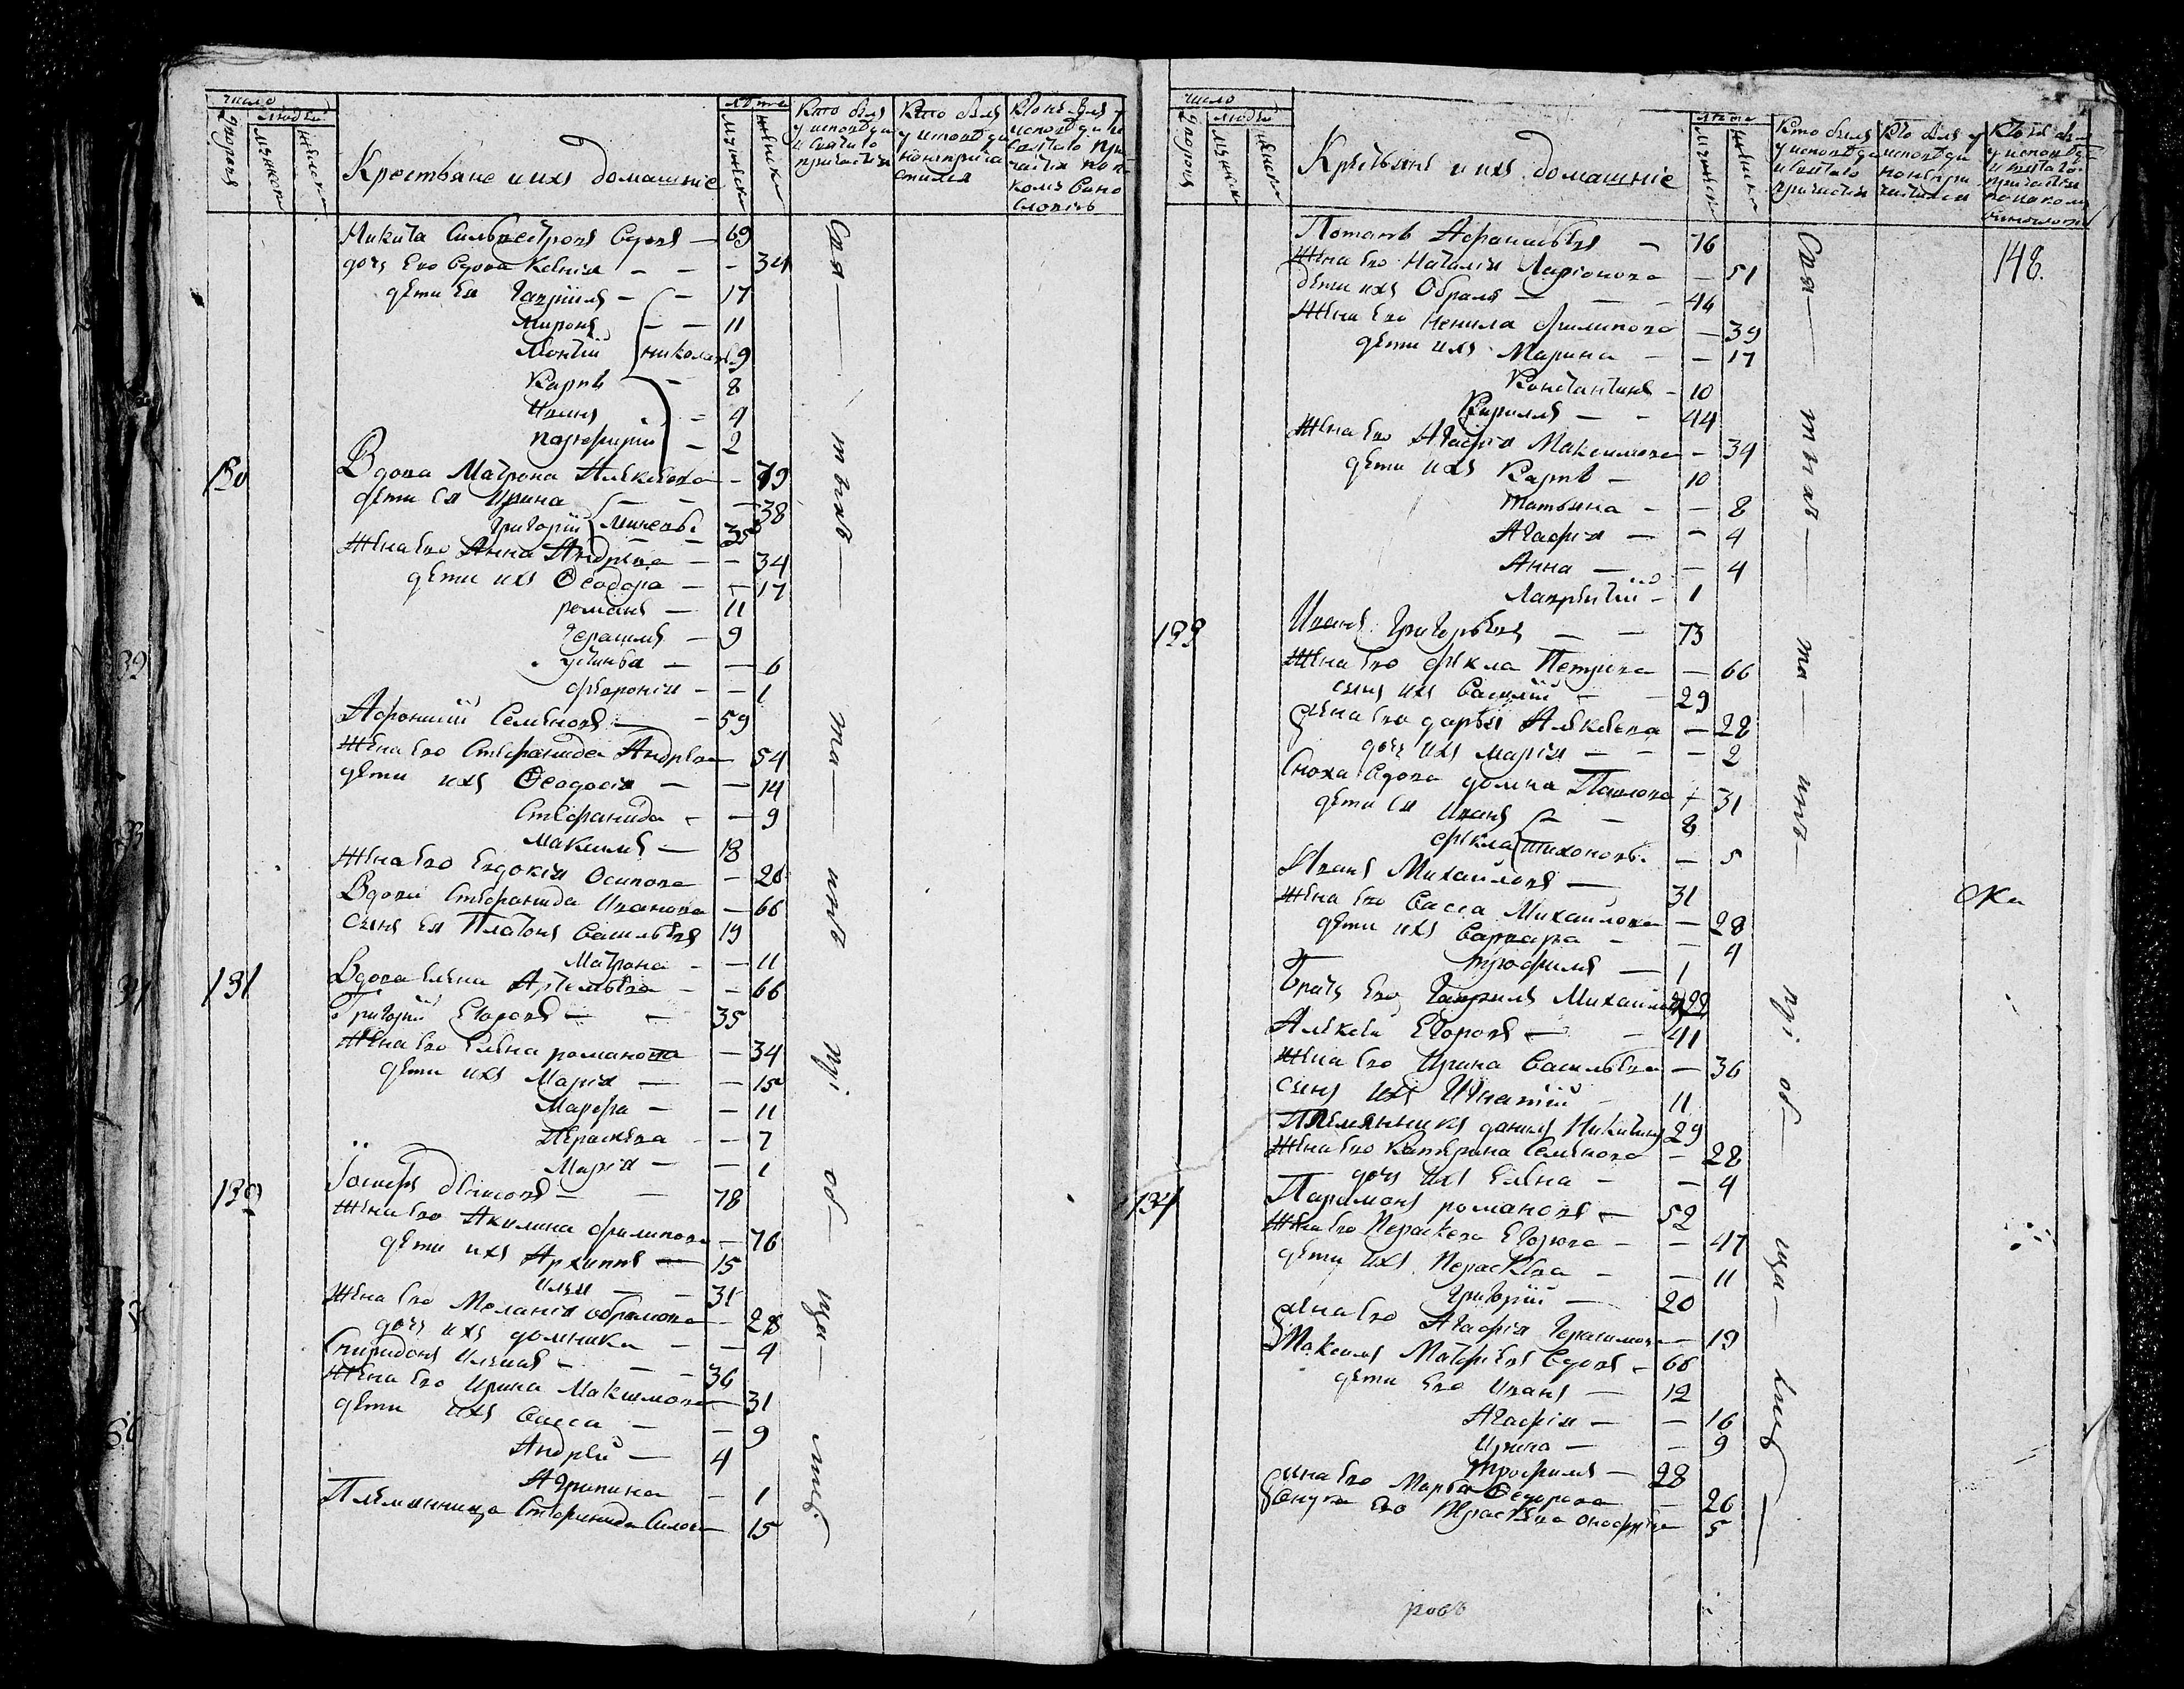 число
людей
Дворовъ
мужеска
женска
Крестьяне и ихъ домашніе
лѣта
мужеска
женска
Кто былъ у исповѣди и святаго причастія
Кто былъ у исповѣди но не причастился
Кто не былъ у исповѣди и святаго причастія и по коимъ винословіямъ
Никита Сильвестровъ вдовъ — 69
дочь его вдова Ксенія — — — 34
дѣти ея Гавріилъ — — 17
Миронъ — — 11
Леонтій Николаевы 9
Карпъ — 8
Иванъ — 4
Порфирій — 2
130 Вдова Матрона Алексѣева — 79
дѣти ея Ирина — — 38
Григорій Минеевы 35
Жена его Анна Андрѣева — — 34
дѣти ихъ Ѳеодора — — 17
романъ — 11
Герасимъ — 9
Устинья — — 6
Февронія — — 1
Афонасій Семеновъ — — 59
Жена его Стефанида Андрѣева 54
дѣти ихъ Ѳеодосія — — 14
Стефанида — — 9
Максимъ — 18
Жена его Евдокія Осипова — 20
Вдова Стефанида Иванова — 66
Сынъ ея Платонъ Васильевъ 19
Матрона — — 11
131 Вдова Елена Артемьева — — 66
Григорій Егоровъ — — 35
Жена его Елена романова — 34
дѣти ихъ Марія — — 15
Марфа — — 11
Параскева — — 7
Марія — — 1
132 Іосифъ — — 78
Жена его Акилина Филипова — 76
дѣти ихъ Архипъ — 15
Илья — — 31
Жена его Меланія Обрамова — 28
дочь ихъ домника — — 4
Спиридонъ — — 36
Жена его Ирина Максимова — 31
дѣти ихъ Васса — — 9
Андрѣй — 4
Агрипина — 1
Племянница Стефанида 15
Свя — тыхъ — та — инъ — прі об — ща — лись
число
людей
Дворовъ
мужеск
женск
Крестьяне и ихъ домашніе
лѣта
мужеск
женск
Кто былъ у исповѣди и святаго причастія
Кто былъ у исповѣди но не причастился
148.
Потапъ Афанасьевъ — 76
Жена его Наталія Ларіонова — 51
дѣти ихъ Обрамъ — — — 46
Жена его Ненила Филипова — 39
дѣти ихъ Марина — — 17
Константинъ — 10
Кирилъ — — 44
Жена его Агафія Максимова — 34
дѣти ихъ Карпъ — 10
Татьяна — — 8
Агафія — — 4
Анна — — 4
Лаврентій — 1
133 Иванъ Григорьевъ — — 73
Жена его Фекла Петрова — 66
сынъ ихъ Василій — — 29
жена его дарья Алексѣева — 22
дочь ихъ Марія — — — 2
Сноха вдова домна Павлова — 31
дѣти ея Иванъ — — 8
Фекла Тихоновы — 5
Иванъ Михаиловъ — 31
Жена его Васса Михаилова — 28
дѣти ихъ Варвара — — 4
Трофимъ — 1
Братъ его Гавриилъ Михаиловъ 22
Алексѣй Егоровъ — — 41
Жена его Ирина Васильева — 36
Сынъ ихъ Игнатій — 11
Племянникъ данилъ Никитинъ 29
Жена его Катерина Семенова — 28
дочь ихъ Елена — — 4
134 Парамонъ романовъ — 52
Жена его Параскева Егорова — — 47
дѣти ихъ Параскева — — 11
Григорій — 20
жена его Агафія Герасимова — 19
Максимъ Матфѣевъ вдовъ — 66
дѣти его Иванъ — 12
Агафія — — 16
Ирина — — 9
Трофимъ — 28
жена его Марфа Ѳедорова — 26
внука его Параскева 5
Свя — тыхъ — та — инъ — прі об — ща — лись